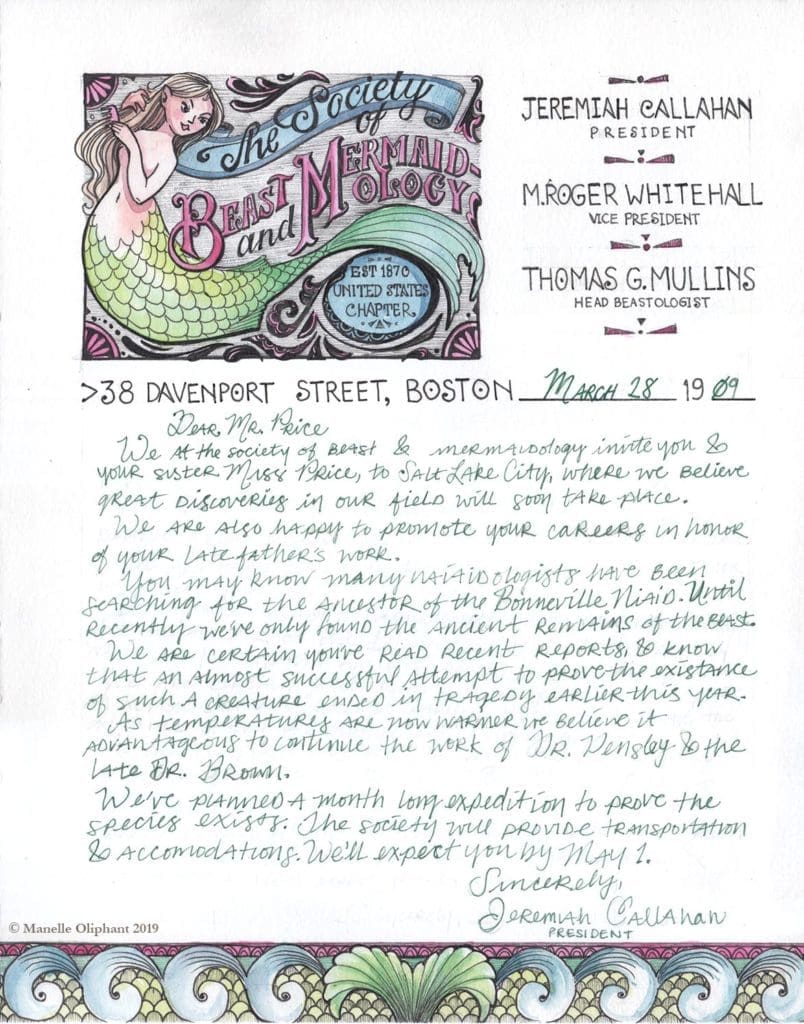 The Society
of
Beast Mermaid-
and ology
EST 1870
UNITED STATES
CHAPTER
JEREMIAH CALLAHAN
PRESIDENT
M. ROGER WHITEHALL
VICE PRESIDENT
THOMAS G. MULLINS
HEAD BEASTOLOGIST
>38 DAVENPORT STREET, BOSTON March 28 1909
Dear Mr. Price
We at the society of Beast & mermaidology invite you &
your sister Miss Price, to Salt Lake City, where we believe
great discoveries in our field will soon take place.
We are also happy to promote your careers in honor
of your late father's work.
You may know many naiadologists have been
searching for the ancestor of the Bonneville Niaid. Until
recently we've only found the ancient remains of the beast.
We are certain you've read recent reports, & know
that an almost successful attempt to prove the existance
of such a creature ended in tragedy earlier this year.
As temperatures are now warmer we believe it
advantageous to continue the work of Dr. Densley & the
late Dr. Brown.
We've planned a month long expedition to prove the
species exists. The society will provide transportation
& accomodations. We'll expect you by May 1.
Sincerely,
Jeremiah Callahan
PRESIDENT
© Manelle Oliphant 2019